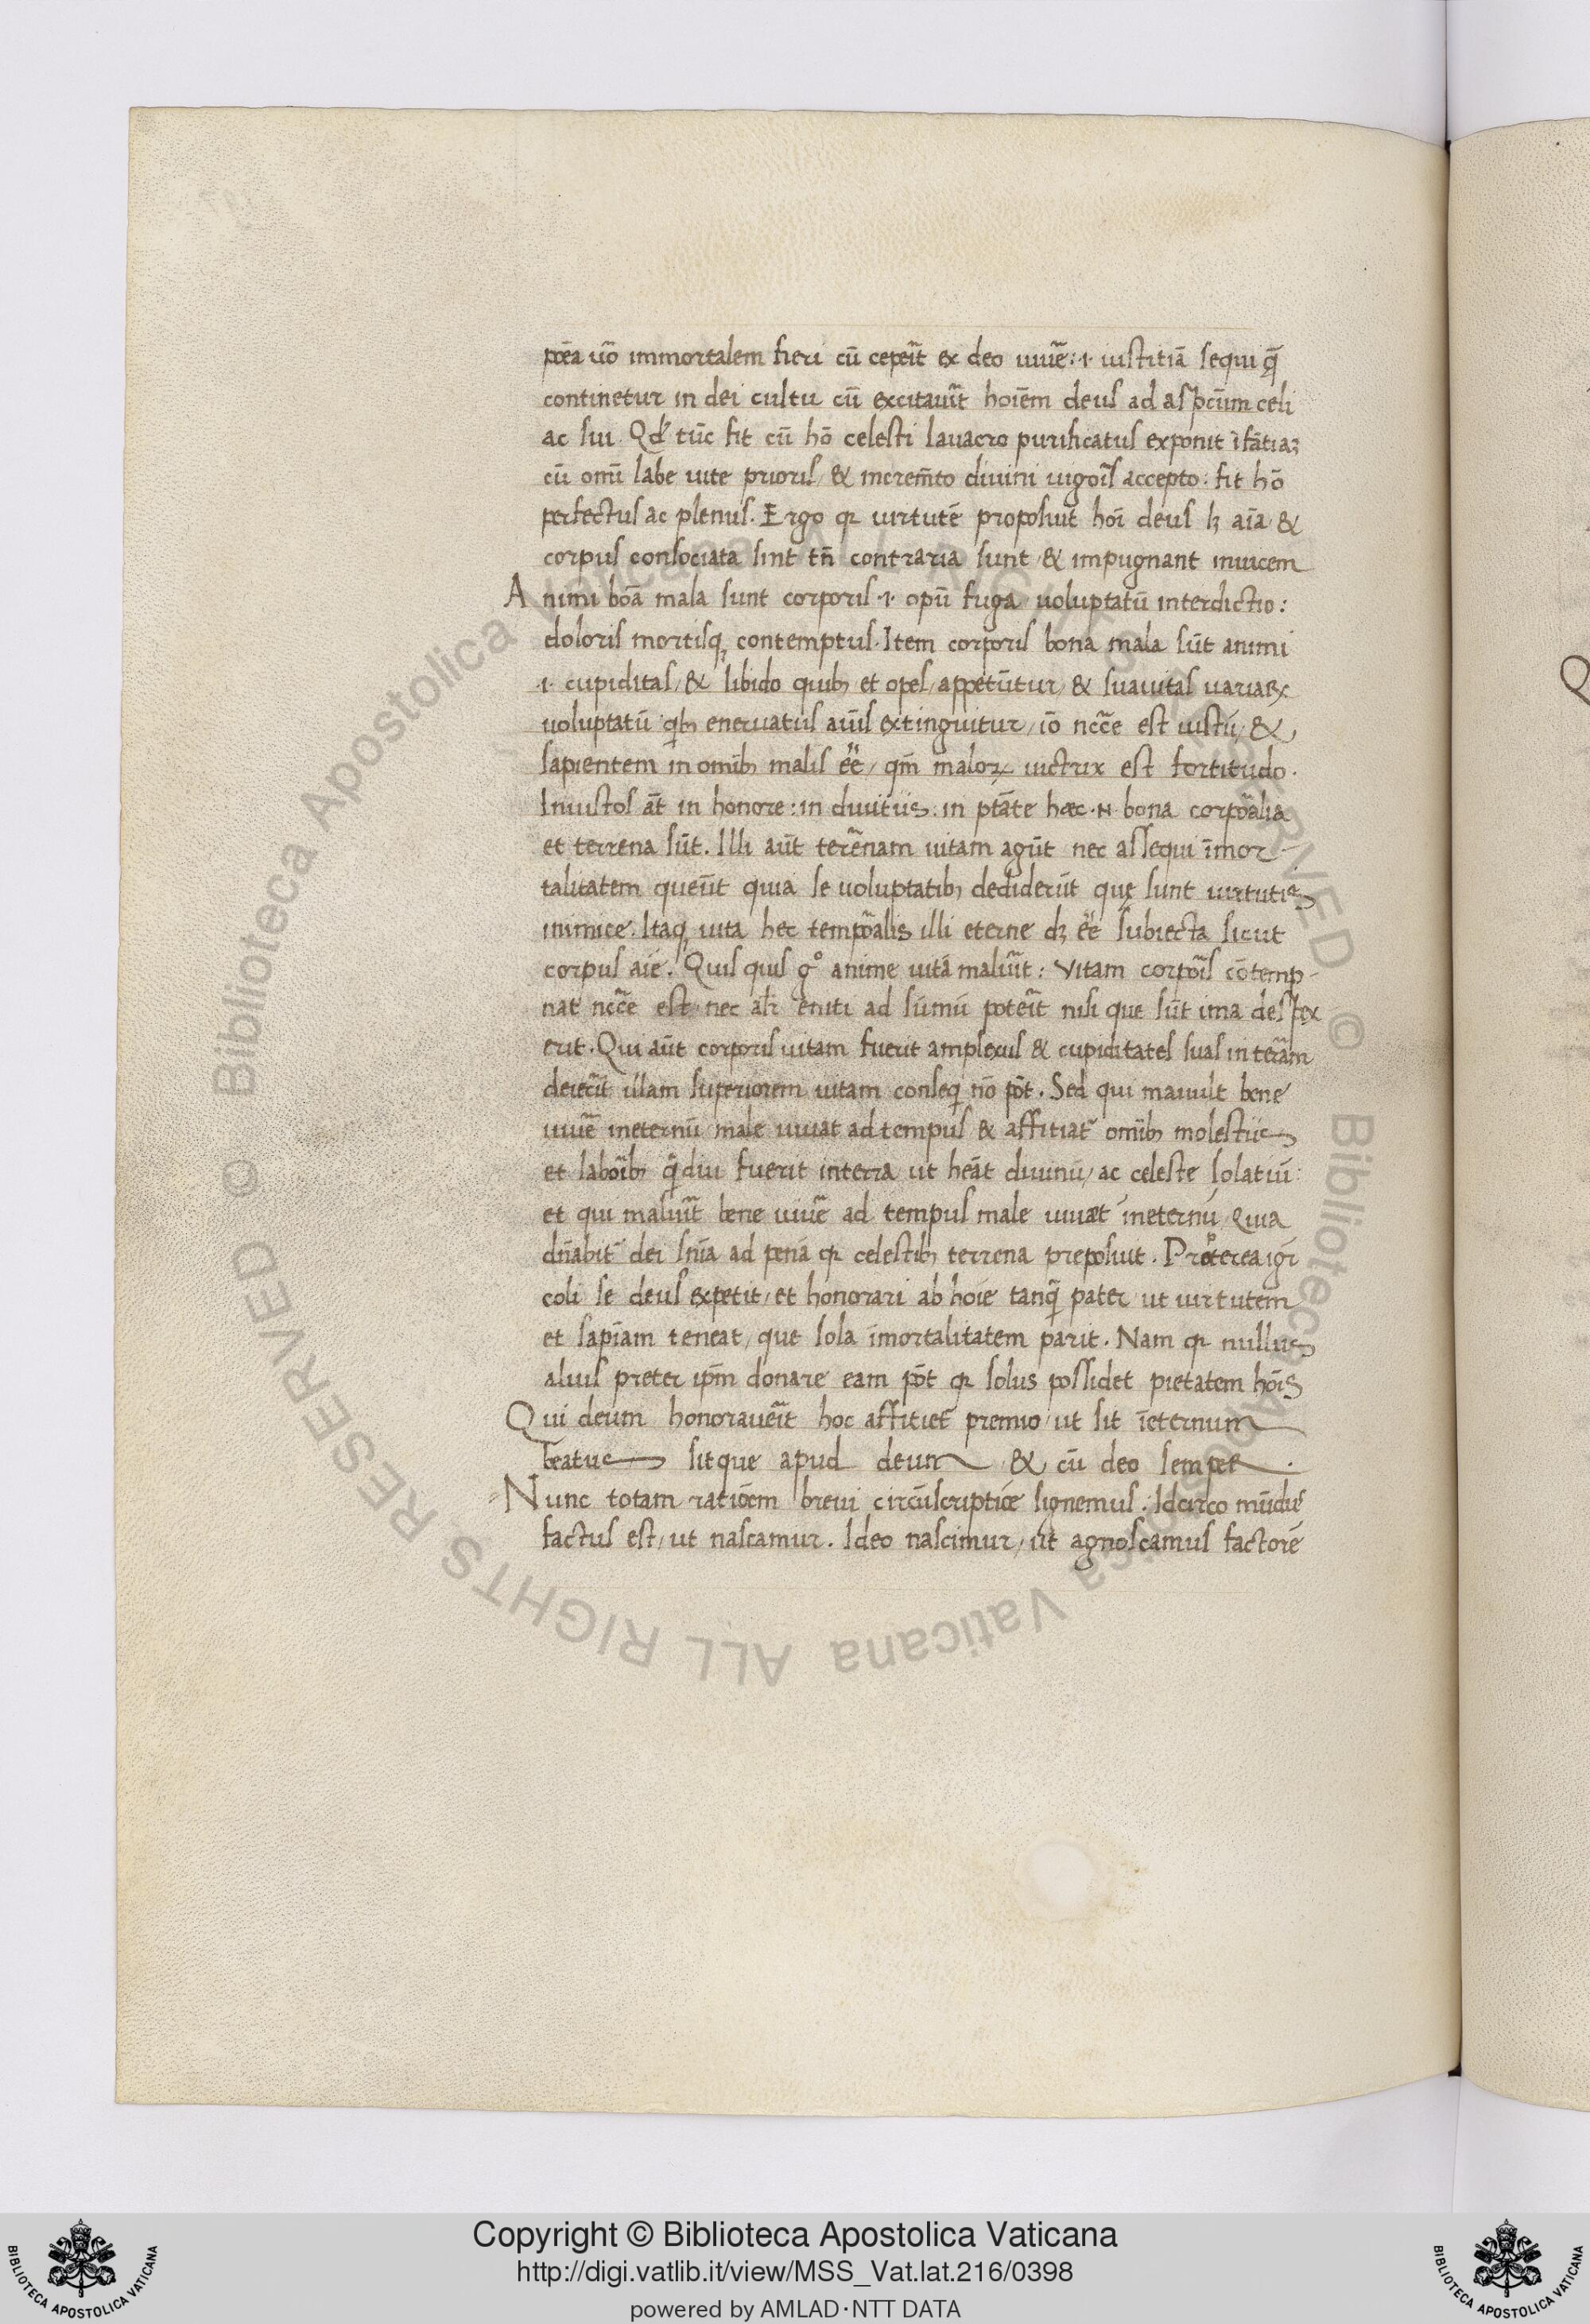 postea u̅o immortalem fieri cu̅ cepe̅it ex deo uiue̅: ·i· iustitia̅ sequi q̅
continetur in dei cultu cu̅ excitaui̅t hoi̅em deus ad aspc̅um celi
ac sui. Qd' tu̅c fit cu̅ ho̅ celesti lauacro purificatus exponit i̅fa̅tiaꝫ
cu̅ omi̅ labe uite prioris / & increm̅to diuini uigoi̅s accepto: fit ho̅
perfectus ac plenus. Ergo qꝛ uirtute̅ proposuit hoi̅ deus lꝫ ai̅a &
corpus consociata sint tn̅ contraria sunt / & impugnant inuicem
A nimi bo̅a mala sunt corporis ·i· opu̅ fuga / uoluptatu̅ interdictio:
doloris mortisqꝫ contemptus. Item corporis bona mala su̅t animi
·i· cupiditas / & libido quibꝫ et opes / appetu̅tur / & suauitas uariaꝝ
uoluptatu̅ qi̅bꝫ eneruatus ai̅us extinguitur / io̅ ncc̅e est iustu̅ / &
sapientem in omi̅bꝫ malis ee̅ / qm̅ maloꝝ uictrix est fortitudo.
Iniustos a̅t in honore: in diuitiis: in pta̅te hæc ·N· bona corpo̅alia
et terrena su̅t. Illi au̅t tere̅nam uitam agu̅t nec assequi i̅mor-
talitatem queu̅t quia se uoluptatibꝫ dediderūt quę sunt uirtutis
inimice. Itaqꝫ uita hec tempo̅alis illi eterne dꝫ ee̅ subiecta sicut
corpus ai̅e. Quis quis gº anime uita̅ malui̅t: Vitam corpoi̅s co̅temp-
nat ncc̅e est / nec al'r eniti ad su̅mu̅ pote̅it nisi que su̅t ima despex
erit. Qui au̅t corporis uitam fuerit amplexus & cupiditates suas in tera̅m
deieci̅t illam superiorem uitam conseqi̅ no̅ po̅t. Sed qui mauult bene
uiue̅ ineternu̅ male uiuat ad tempus & affitiat̅ omi̅bꝫ molestiis
et laboi̅bꝫ qi̅diu fuerit interra ut hea̅t diuinu̅ / ac celeste solatiu̅:
et qui malui̅t bene uiue̅ ad tempus male uiuæt ineternu̅ / Quia
dn̅abit̅ dei sni̅a ad pena̅ qꝛ celestibꝫ terrena preposuit. Proterea igi̅
coli se deus expetit / et honorari ab hoi̅e tanqi̅ pater ut uirtutem
et sapi̅am teneat / que sola i̅mortalitatem parit. Nam qꝛ nullus
alius preter ipm̅ donare eam po̅t qꝛ solus possidet pietatem hoi̅s
Qui deum honoraue̅it hoc affitiet̅ premio / ut sit i̅eternum
beatus sitque apud deum & cu̅ deo semper.
Nunc totam ratio̅em breui circu̅scriptio̅e signemus. Idcirco mu̅dus
factus est / ut nascamur. Ideo nascimur / ut agnoscamus factore̅
Copyright © Biblioteca Apostolica Vaticana
http://digi.vatlib.it/view/MSS_Vat.lat.216/0398
powered by AMLAD·NTT DATA
BIBLIOTECA APOSTOLICA VATICANA
BIBLIOTECA APOSTOLICA VATICANA
© Biblioteca Apostolica Vaticana ALL RIGHTS RESERVED © Biblioteca Apostolica Vaticana ALL RIGHTS RESERVED